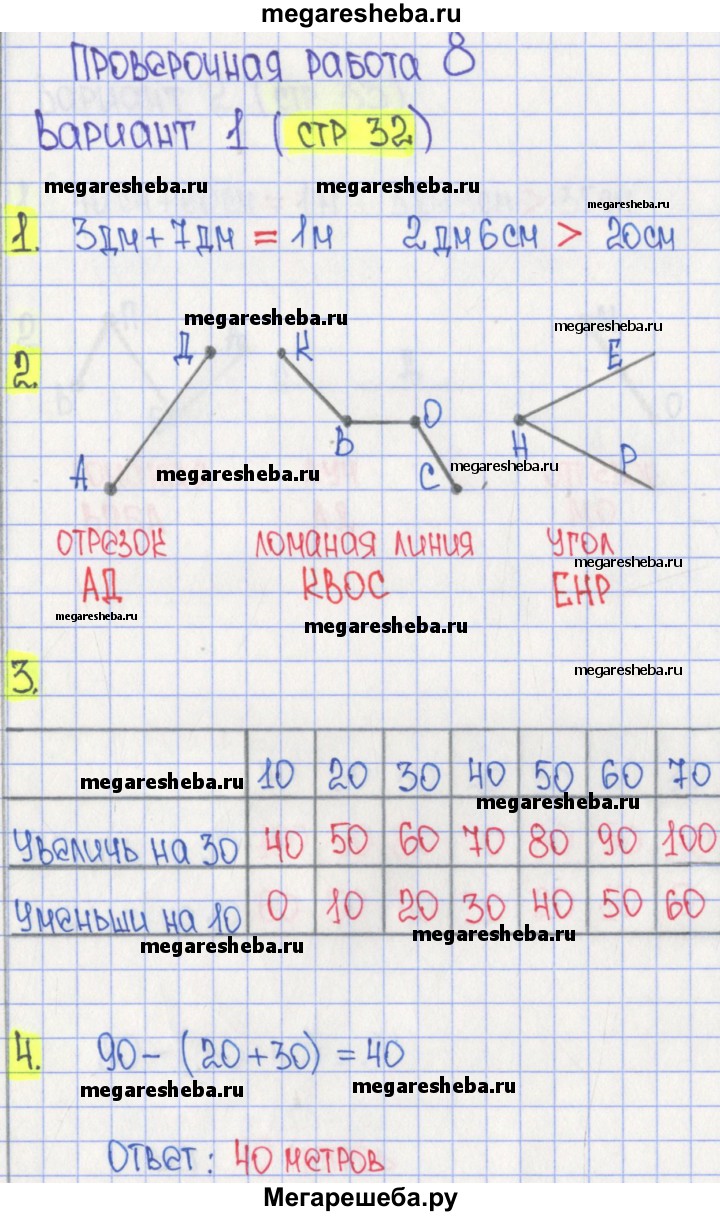 megaresheba.ru
Проверочная работа 8
Вариант 1 (стр 32)
megaresheba.ru megaresheba.ru
megaresheba.ru
1. 3дм + 7дм = 1м 2дм 6см > 20см
megaresheba.ru
megaresheba.ru
2. Д К Е
В О Н
А С Р
megaresheba.ru megaresheba.ru
отрезок ломаная линия угол
megaresheba.ru
АД КВОС ЕНР
megaresheba.ru
megaresheba.ru
3. megaresheba.ru
megaresheba.ru 10 20 30 40 50 60 70
megaresheba.ru
Увеличь на 30 40 50 60 70 80 90 100
Уменьши на 10 0 10 20 30 40 50 60
megaresheba.ru megaresheba.ru
4. 90 - (20 + 30) = 40
megaresheba.ru megaresheba.ru
Ответ: 40 метров
Мегарешеба.ру